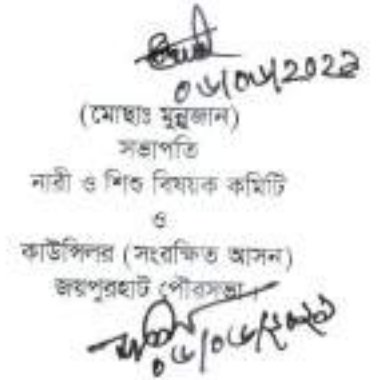 (মোছাঃ মুন্নুজান)
সভাপতি
নারী ও শিশু বিষয়ক কমিটি
ও
কাউন্সিলর (সংরক্ষিত আসন)
জয়পুরহাট পৌরসভা।